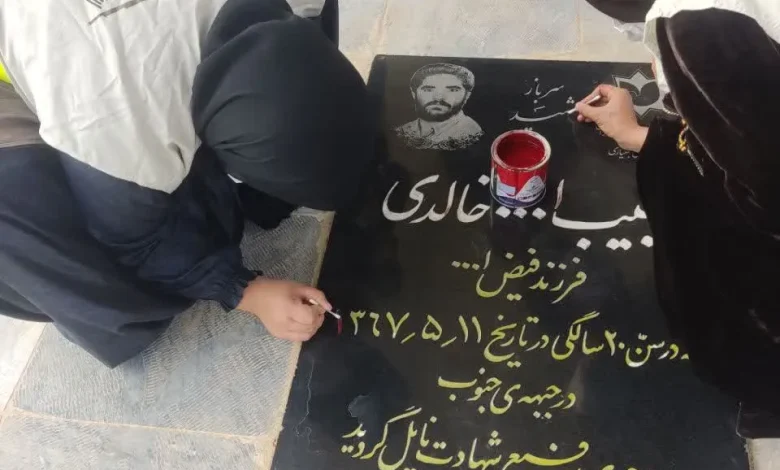 سرباز
شهید
خالدی
فرزند فیض ا...
در سن ۲۰ سالگی در تاریخ ۱۱ ر ۵ ر ۳۶۷
در جبهه ی جنوب
شهادت نایل گردید